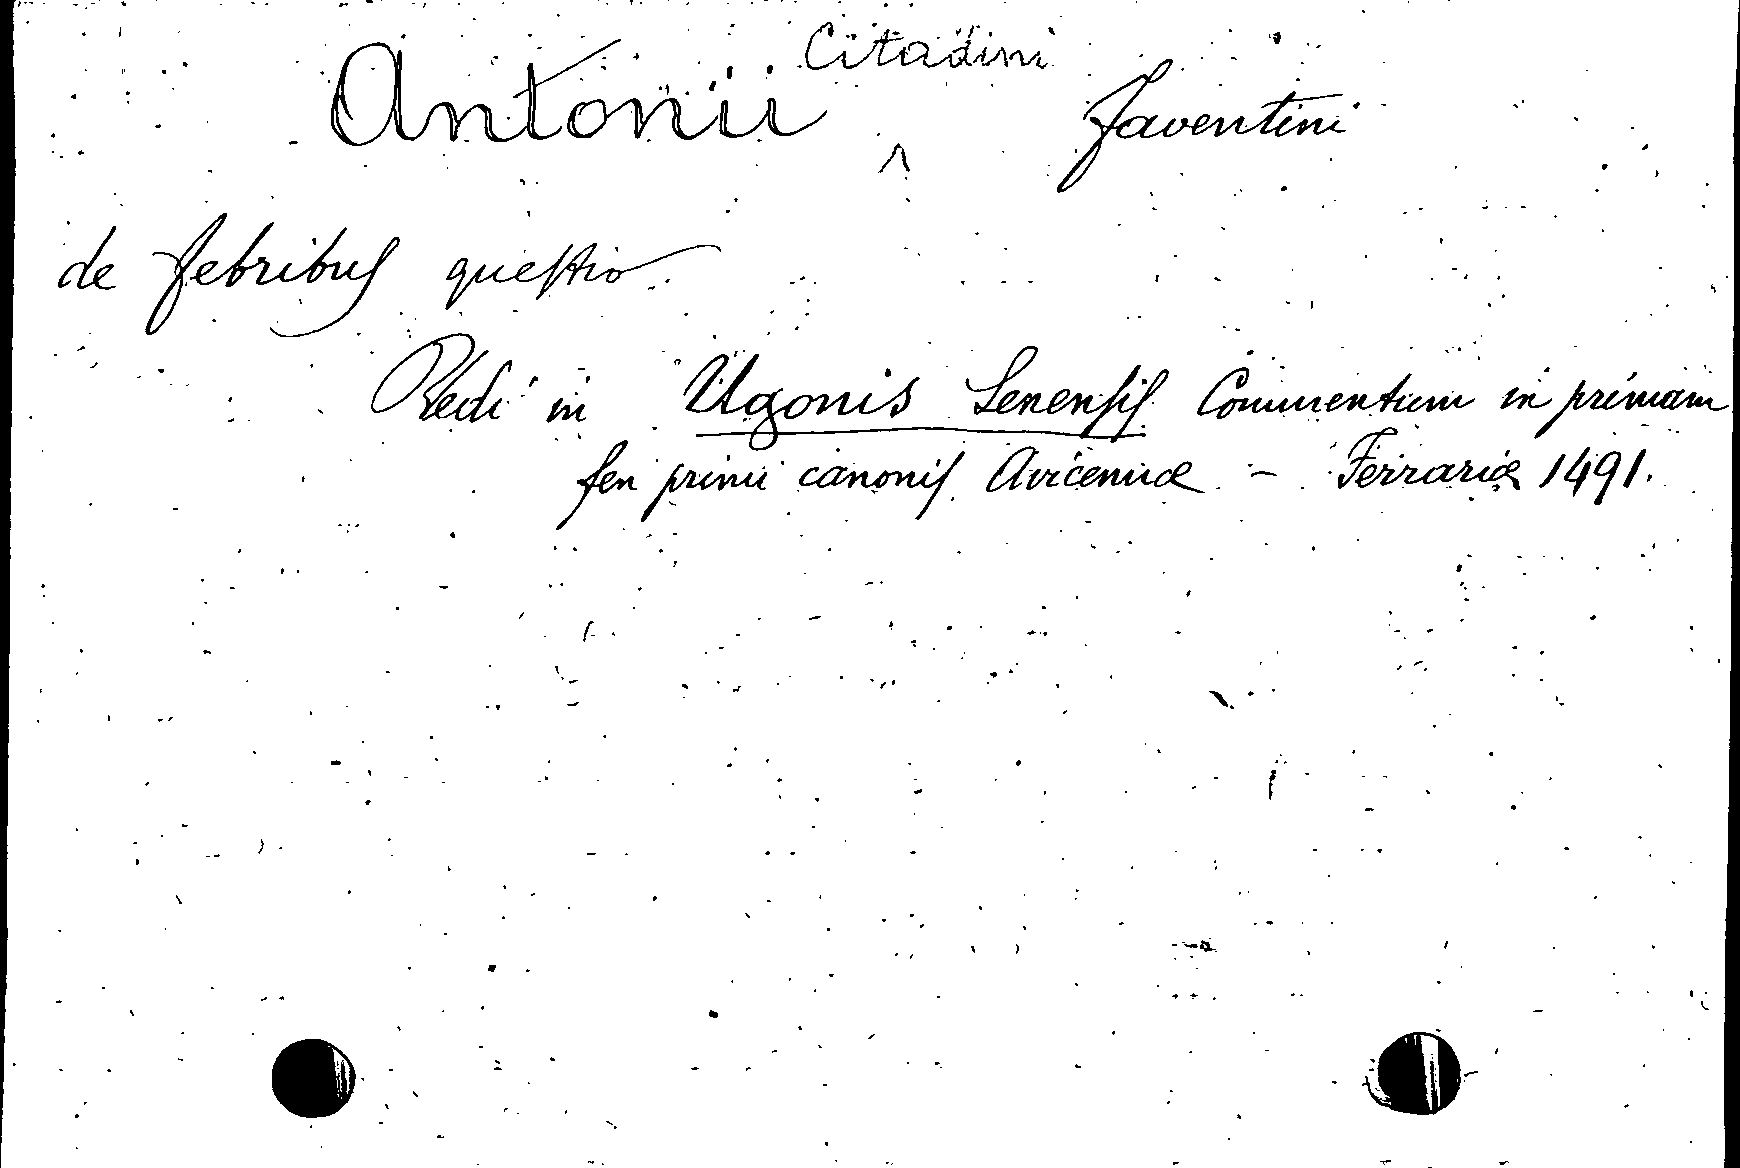 Antonii Citadini Faventini
de febribus questio
Vedi in Ugonis Senensis Commentum in primam
fen primi canonis Avicennæ - Ferrariæ 1491.